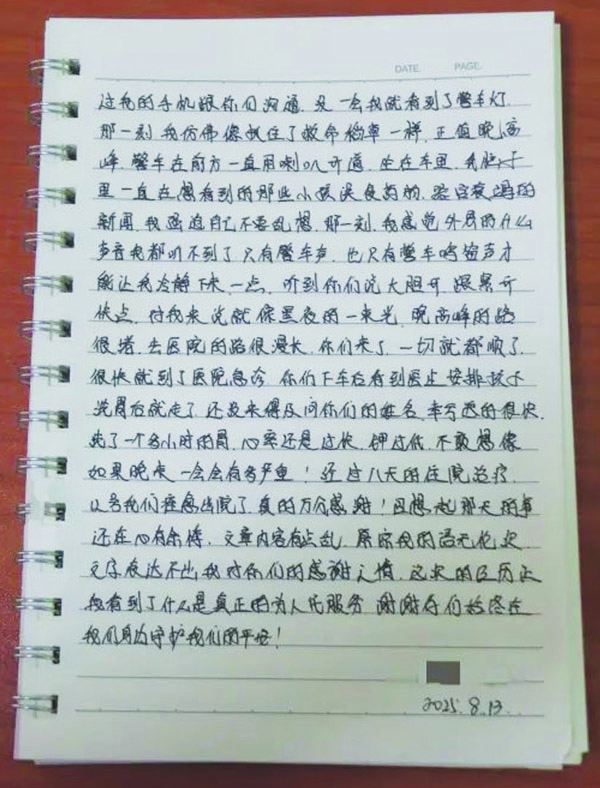 DATE. PAGE.
过我的手机跟你们沟通，没一会我就看到了警车灯
那一刻我仿佛像抓住了救命稻草一样，正值晚高
峰，警车在前方一直用喇叭开道，坐在车里，我脑子
里一直在想看到的那些小孩误食药物，路客救妈的
新闻，我强迫自己不要乱想，那一刻，我感觉外界的什么
声音我都听不到了，只有警车声，也只有警车鸣笛声才
能让我冷静下来一点，听到你们说大胆开，跟紧开
快点，对我来说就像黑夜的一束光，晚高峰的路
很堵，去医院的路很漫长，你们来了，一切就都顺了
很快就到了医院急诊，你们下车后看到医生安排孩子
洗胃后就走了，还没来得及问你们的姓名，幸亏送的很快
洗了一个多小时的胃，心率还是过长，钾过低，不敢想像
如果晚来一会会有多严重！经过八天的住院治疗
我们痊愈出院了，真的万分感谢！回想起那天的事
还在心有余悸，文章内容有点乱，原谅我的语无伦次
文字表达不出我对你们的感谢之情，这次的经历让
我看到了什么是真正的为人民服务，谢谢你们始终在
我们身边守护我们的平安！
2025.8.13.